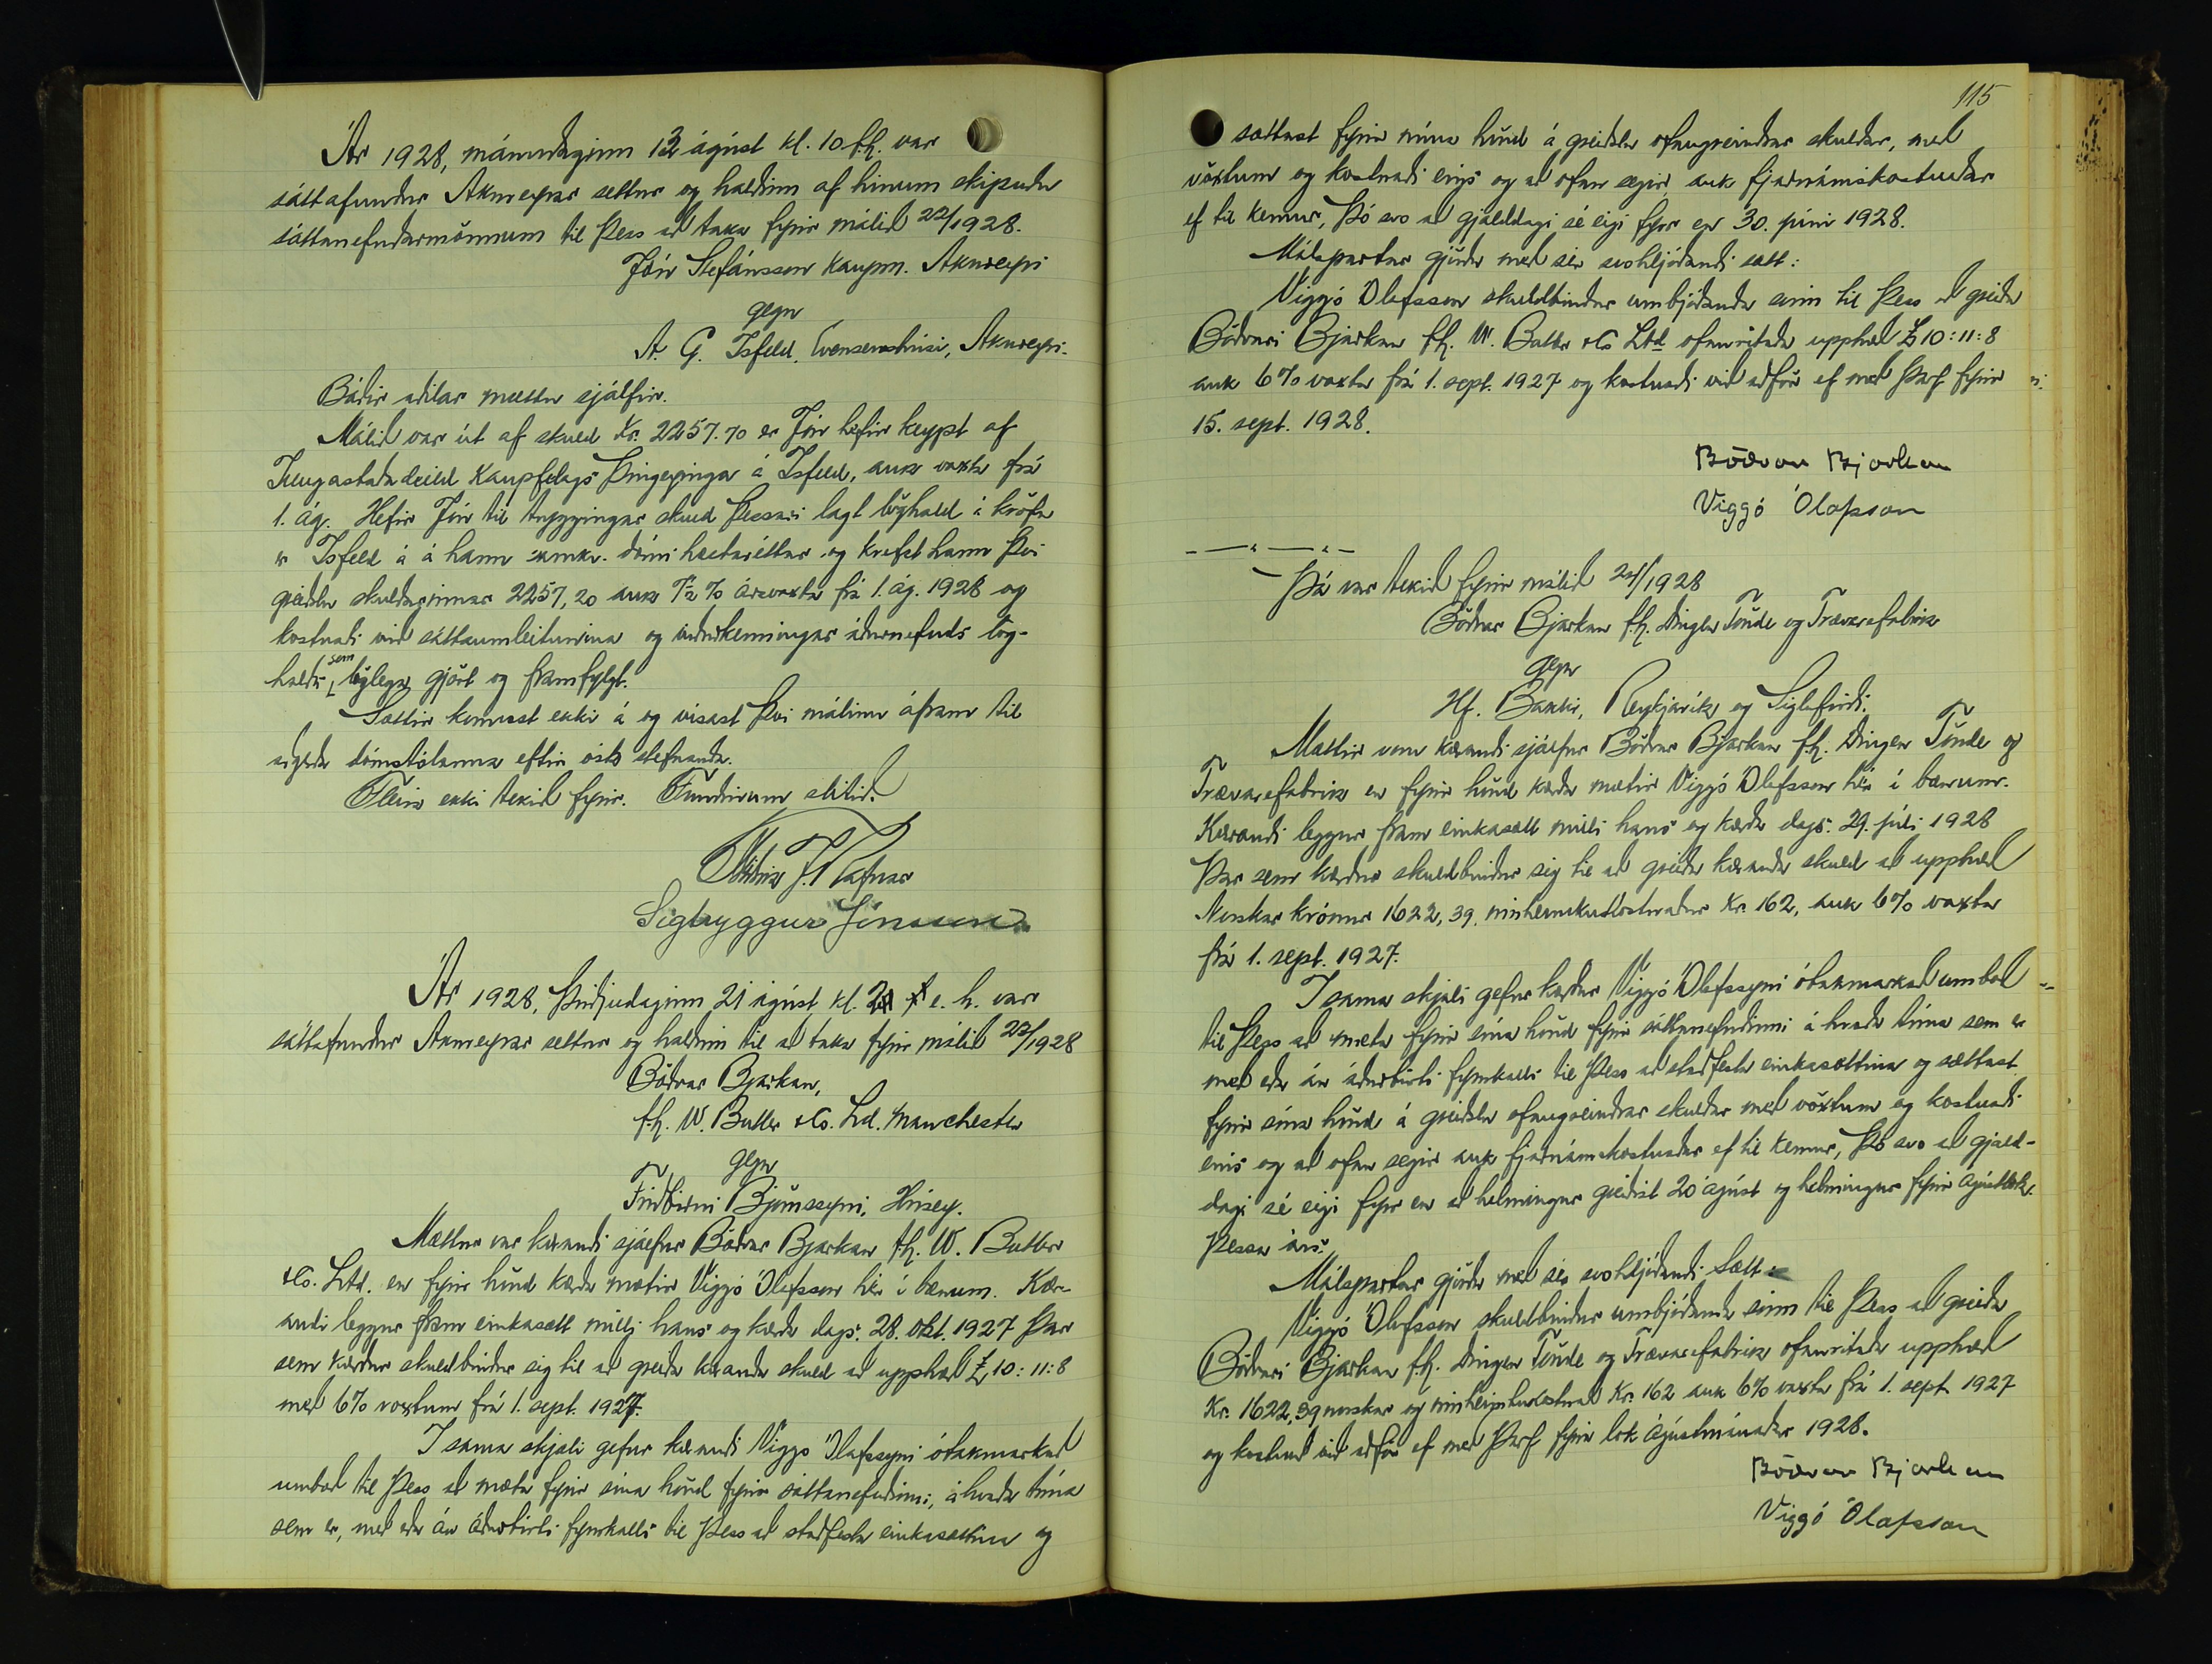 Ár 1928, mánudaginn 13 ágúst kl. 10 f.h. var
sáttafundur Akureyrar settur og haldinn af hinum skipuðu
sáttanefndarmönnum til þess að taka fyrir málið 22/1928.
Jón Stefánsson kaupm. Akureyri
gegn
A. G. Ísfeld, Akureyri.
Báðir aðilar mættu sjálfir.
Málið var út af skuld Kr. 2257.70 er Jón hefir keypt af
deild Kaupfelags Þingeyinga á Ísfeld, auk vaxta frá
1. ág. Hefir Jón til tryggingar skuld þessari lagt löghald í kröfu
er Ísfeld á á hann samkv. dómi hæstaréttar og krefst hann því
greiðslu skuldarinnar 2257,20 auk 7½ % ársvaxta frá 1. ág. 1928 og
kostnaði við sáttaumleitunina og viðurkenningar áðurnefnds lög-
halds sem löglega gjört og framfylgt.
Sættir komust ekki á og vísast því málinu áfram til
aðgerða dómstólanna eftir ósk stefnanda.
Fleira ekki tekið fyrir. Fundinum slitið.
Friðrik J. Rafnar
Sigtryggur Jónsson
Ár 1928, þriðjudaginn 21 ágúst kl. 2 e. h. var
sáttafundur Akureyrar settur og haldinn til að taka fyrir málið 23/1928
Böðvar Bjarkan,
f.h. W. Butler & Co. Ltd. Manchester
gegn
Friðbirni Björnssyni, Hrísey.
Mættur var kærandi sjálfur Böðvar Bjarkan f.h. W. Butler
& Co. Ltd. en fyrir hönd kærða mætir Viggó Ólafsson hér í bænum. Kær-
andi leggur fram einkasátt milli hans og kærða dags. 28. okt. 1927 þar
sem kærður skuldbindur sig til að greiða kæranda skuld að upphæð £ 10:11:8
með 6% vöxtum frá 1. sept. 1927.
Í sama skjali gefur kærandi Viggó Ólafssyni ótakmarkað
umboð til þess að mæta fyrir sína hönd fyrir sáttanefndinni, á hvaða tíma
sem er, með eða án áðurbirti fyrirkalli til þess að staðfesta einkasættina og
115
sættast fyrir mína hönd á greiðslu ofangreindrar skuldar, með
vöxtum og kostnaði eins og að ofan segir, auk fjárnámskostnaðar
ef til kemur, þó svo að gjalddagi sé eigi fyrr en 30. júní 1928.
Málspartar gjörðu með sér svohljóðandi sátt:
Viggó Ólafsson skuldbindur umbjóðanda sinn til þess að greiða
Böðvari Bjarkan f.h. W. Butler & Co Ltd ofanritaða upphæð £ 10:11:8
auk 6% vaxta frá 1. sept. 1927 og kostnaði við aðför ef með þarf fyrir
15. sept. 1928.
Böðvar Bjarkan
Viggó Ólafsson
Þá var tekið fyrir málið 24/1928
Böðvar Bjarkan f.h. Dingen Tönde og Trævarefabrik
gegn
Hf. Bakki, Reykjavík og Siglufirði.
Mættir voru kærandi sjálfur Böðvar Bjarkan f.h. Dingen Tönde og
Trævarefabrik en fyrir hönd kærða mætir Viggó Ólafsson hér í bænum.
Kærandi leggur fram einkasátt milli hans og kærða dags. 29. júlí 1928
þar sem kærður skuldbindur sig til að greiða kæranda skuld að upphæð
Norskar krónur 1622,39, innheimtukostnaður Kr. 162, auk 6% vaxta
frá 1. sept. 1927.
Í sama skjali gefur kærður Viggó Ólafssyni ótakmarkað umboð
til þess að mæta fyrir sína hönd fyrir sáttanefndinni á hvaða tíma sem er
með eða án áðurbirti fyrirkalli til þess að staðfesta einkasættina og sættast
fyrir sína hönd á greiðslu ofangreindrar skuldar með vöxtum og kostnaði
eins og að ofan segir auk fjárnámskostnaðar ef til kemur, þó svo að gjald-
dagi sé eigi fyrr en að helmingur greiðist 20 ágúst og helmingur fyrir ágústlok
þessa árs.
Málspartar gjörðu með sér svohljóðandi Sátt:
Viggó Ólafsson skuldbindur umbjóðanda sinn til þess að greiða
Böðvari Bjarkan f.h. Dingen Tönde og Trævarefabrik ofanritaða upphæð
Kr. 1622,39 norskar og innheimtukostnað Kr. 162 auk 6% vaxta frá 1. sept 1927
og kostnað við aðför ef með þarf fyrir lok Ágústmánaðar 1928.
Böðvar Bjarkan
Viggó Ólafsson